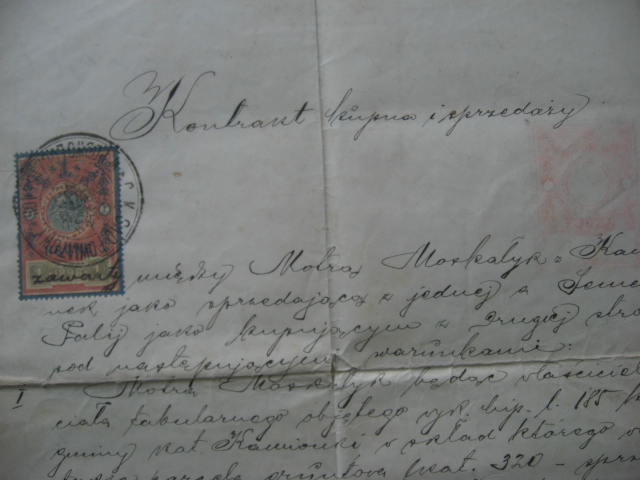 Kontrakt kupna i sprzedaży
zawarty między Motrą Moskałyk z Kam
nek jako sprzedającą z jednej a Seme
Palij jako kupującym z drugiej stro
pod następującymi warunkami:
I Motra Moskałyk będąc właściciel
ciała tabularnego objętego wyk. hip. l. 185
gminy kat. Kamionki w skład którego
parcela gruntowa lkat. 320 – sprz